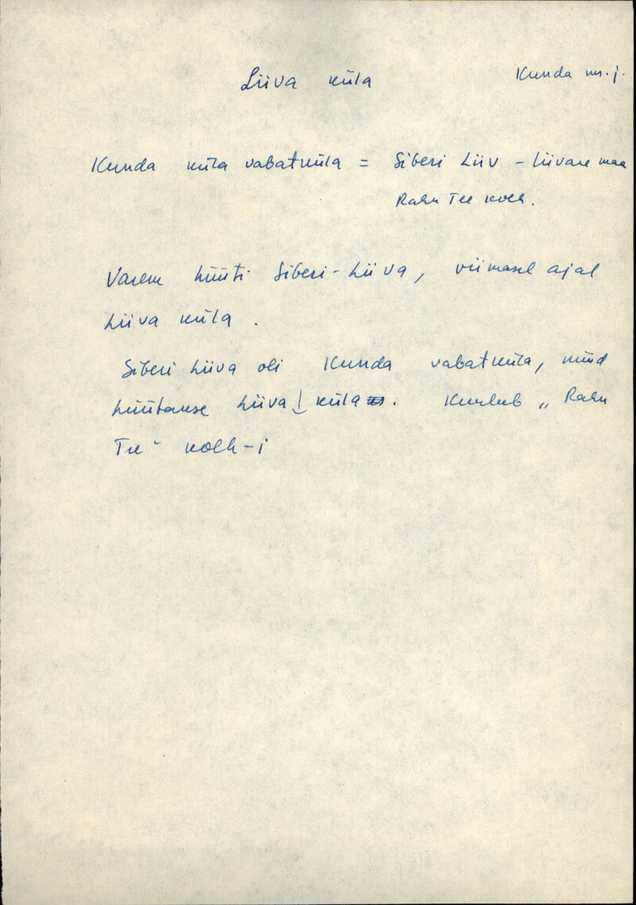 Liiva küla
Kunda ns. j.
Kunda küla vabatküla = Siberi Liiv – Liivane maa
Rahu Tee kolh.
Varem hüüti Siberi-Liiva, viimasel ajal
Liiva küla.
Siberi Liiva oli Kunda vabatküla, nüüd
hüütakse Liiva küla. Kuulub „Rahu
Tee" kolh-i